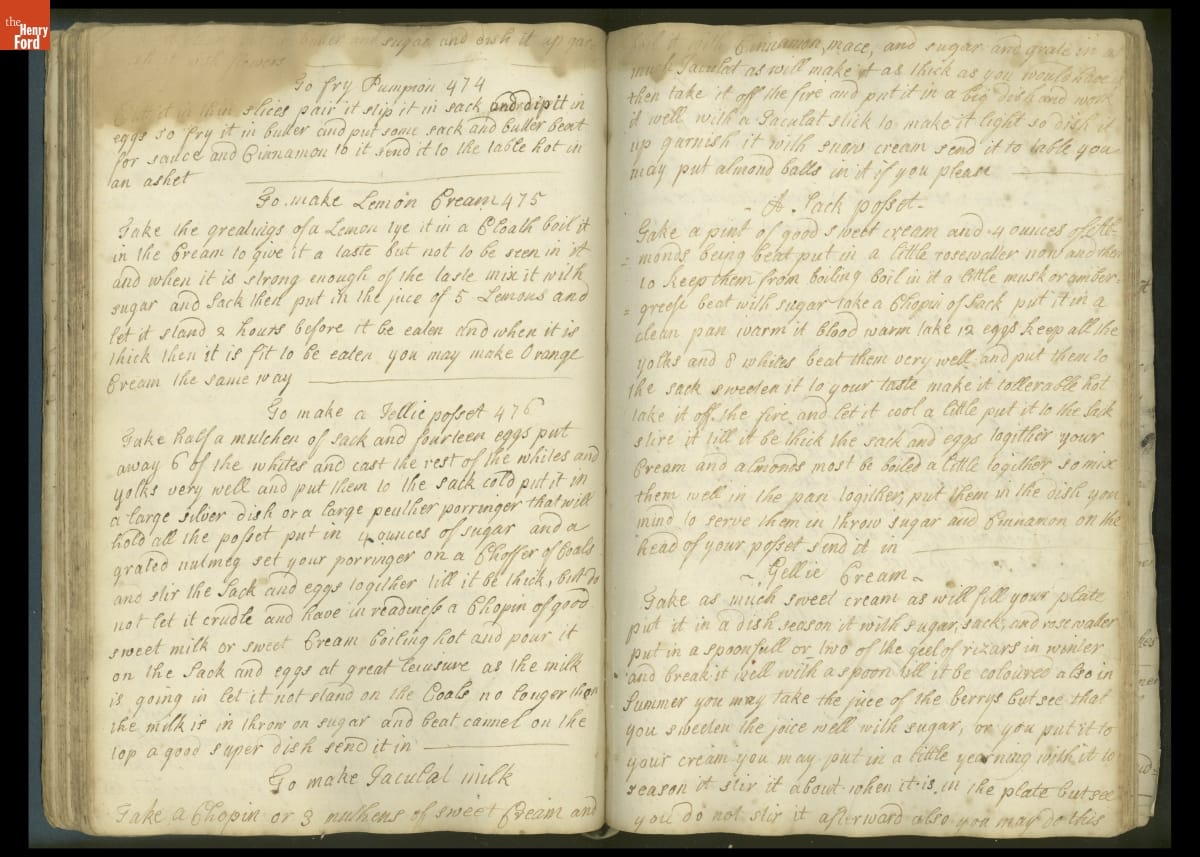 the Henry Ford
butter and sugar and dish it up gar-
flowers
To fry Pumpion 474
Cut it in thin slices pair it slip it in sack and dip it in
eggs so fry it in butter and put some sack and butter beat
for sauce and Cinnamon to it send it to the table hot in
an ashet
To make Lemon Cream 475
Take the greatings of a Lemon tye it in a Cloath boil it
in the Cream to give it a taste but not to be seen in it
and when it is strong enough of the taste mix it with
sugar and Sack then put in the juce of 5 Lemons and
let it stand 2 hours before it be eaten and when it is
thick then it is fit to be eaten you may make Orange
Cream the same way
To make a Jellie posset 476
Take half a mutchen of sack and fourteen eggs put
away 6 of the whites and cast the rest of the whites and
yolks very well and put them to the sack cold put it in
a large silver dish or a large peuther porringer that will
hold all the posset put in 4 ounces of sugar and a
grated nutmeg set your porringer on a Choffer of Coals
and stir the Sack and eggs togither till it be thick, but do
not let it crudle and have in readiness a Chopin of good
sweet milk or sweet Cream boiling hot and pour it
on the Sack and eggs at great leiusure as the milk
is going in let it not stand on the Coals no longer than
the milk is in throw on sugar and beat cannel on the
top a good super dish send it in
To make Jaculat milk
Take a Chopin or 3 mutkens of sweet Cream and
boil it with Cinnamon, mace, and sugar and grate in a
much Jaculat as will make it as thick as you would have
then take it off the fire and put it in a big dish and work
it well with a Jaculat stick to make it light so dish it
up garnish it with snow cream send it to table you
may put almond balls in it if you please
A Sack posset
Take a pint of good sweet cream and 4 ounces of Al-
= monds being beat put in a little rosewatter now and then
to keep them from boiling boil in it a little musk or amber-
= greese beat with sugar take a Chopin of Sack put it in a
clean pan warm it blood warm take 12 eggs keep all the
yolks and 8 whites beat them very well and put them to
the sack sweeden it to your taste make it tollerable hot
take it off the fire and let it cool a little put it to the Sack
stire it till it be thick the sack and eggs togither your
Cream and almonds most be boiled a little togither so mix
them well in the pan togither, put them in the dish you
mind to serve them in throw sugar and Cinnamon on the
head of your posset send it in
Gellie Cream
Take as much sweet cream as will fill your plate
put it in a dish season it with sugar, sack, and rosewatter
put in a spoonfull or two of the geel of rizars in winter
and break it well with a spoon till it be coloured also in
Summer you may take the juce of the berrys but see that
you sweeden the joice well with sugar, or you put it to
your cream you may put in a little yearning with it to
season it stir it about when it is in the plate but see
you do not stir it afterward also you may do this